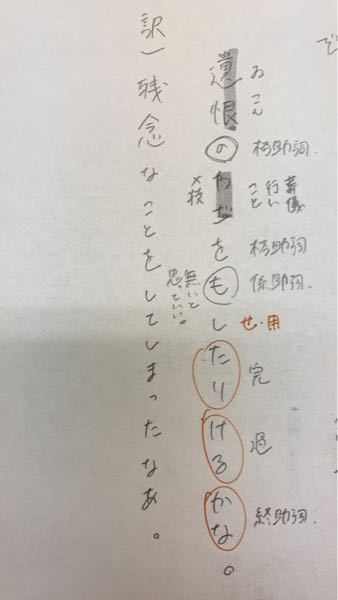 ゐこん
格助詞
葬儀
行い
こと
格助詞
係助詞
せ・用
完
過
終助詞
遺恨のわざをもしたりけるかな。
×技
無いと
思っていい。
訳)残念なことをしてしまったなあ。